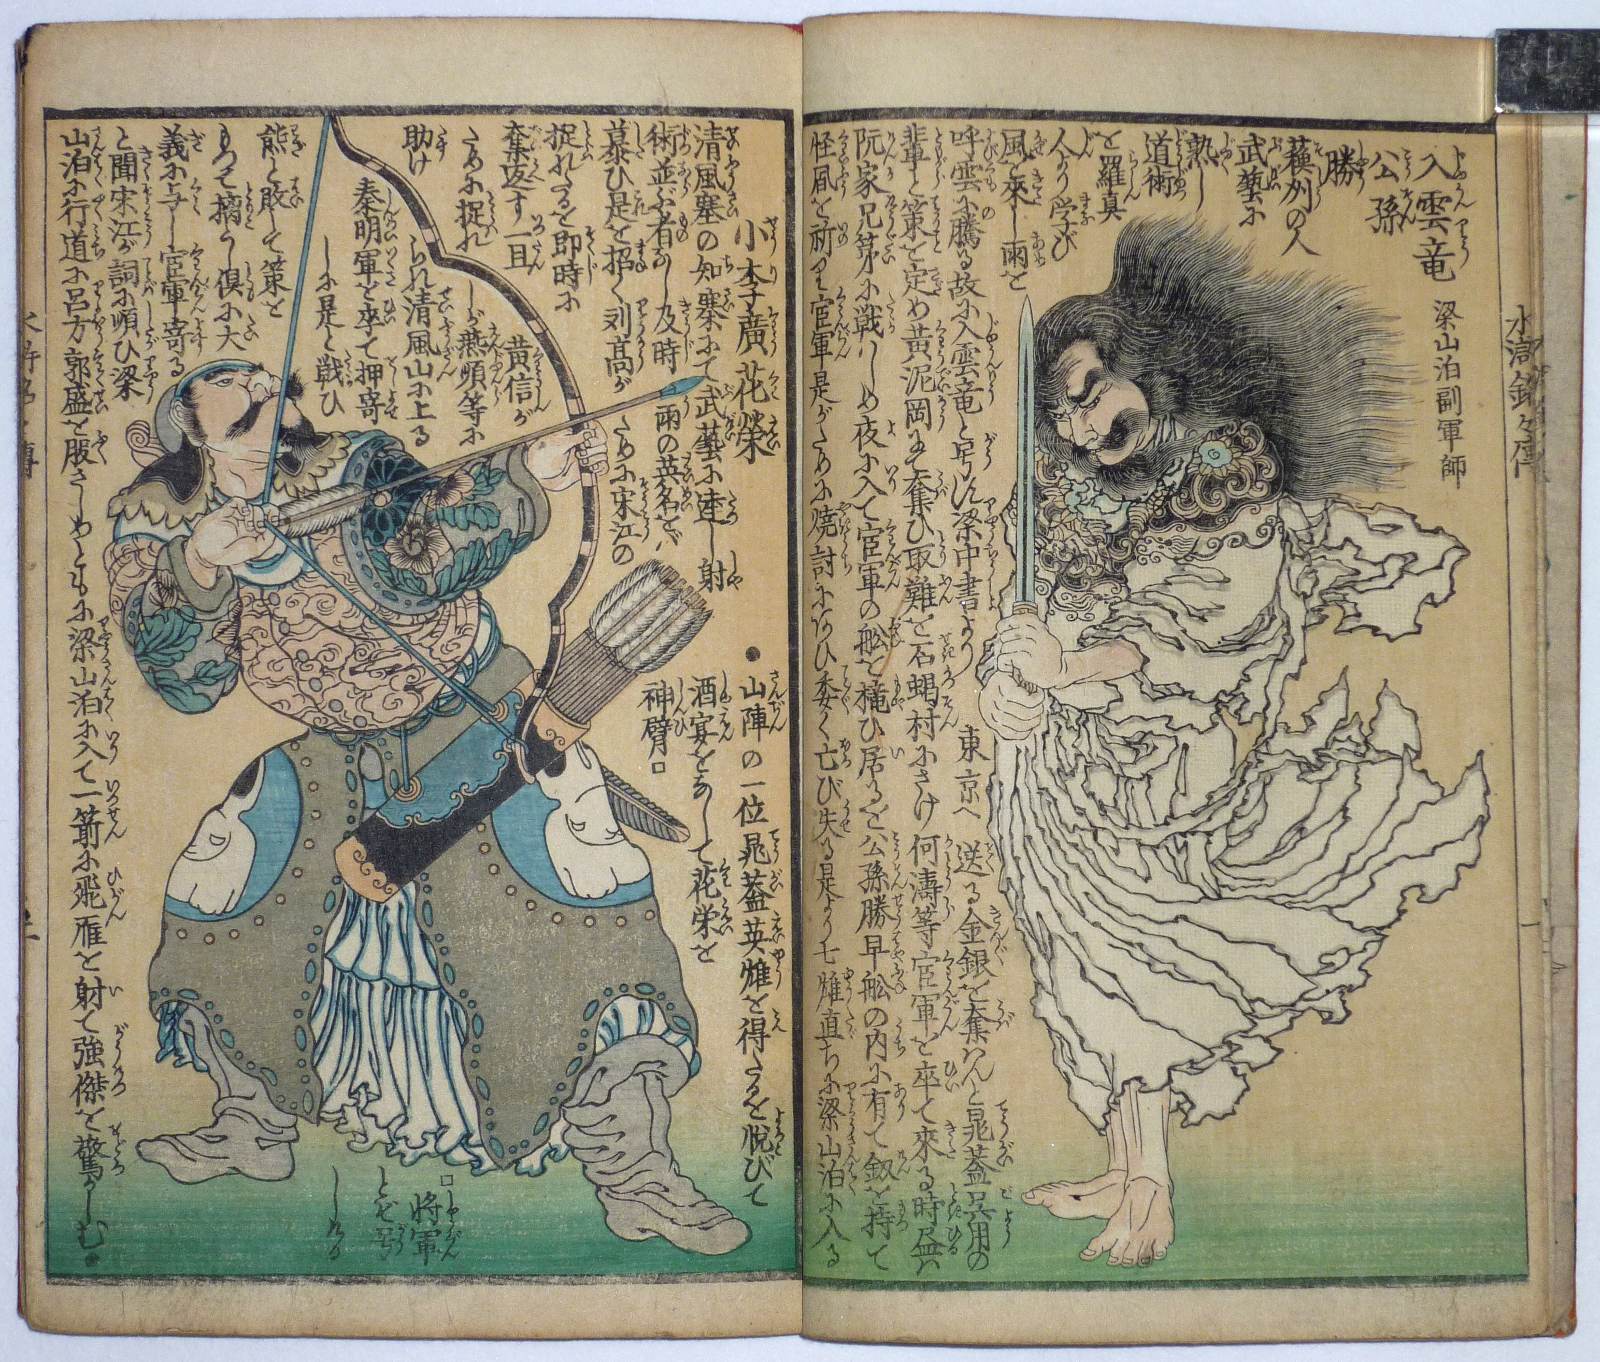 入雲竜
公孫
勝
梁山泊副軍師
蘓州の人
武藝に
熟し
道術
を羅真
人より学び
風を來し雨を
呼雲に騰る故に入雲竜と号す梁中書より
東京へ
送る金銀を奪はんと晁蓋呉用の
輩と策を定め黄泥岡にて奪ひ取難を石碣村にさけ
何濤等官軍を卒て來る時
阮家兄弟に戦はしめ夜に入て官軍の舩を
居るを公孫勝早舩の内に有て釼を持て
怪風を祈り官軍是がために焼討にあひ委く亡び失る是より七雄直ちに梁山泊に入る
小李廣花榮
清風塞の知塞にて武藝に達し射
術並ぶ者なし及時
雨の英名を
慕ひ是を招く刘高が
ために宋江の
捉れるを即時に
奪返す一旦
黄信が
ために捉れ
しが燕順等に
助け
られ清風山に上る
秦明軍を卒て押寄
しに是と戦ひ
熊と敗して策を
もつて擒にし倶に大
義に与し官軍寄る
と聞宋江が詞に順ひ梁
山泊に行道に呂方郭盛を服さしめともに梁山泊に入て一箭に飛雁を射て強傑を驚かしむ
●山陣の一位晁蓋英雄を得たるを悅びて
酒宴をなして花栄を
神臂□
□将軍
とぞ号
しける
水滸銘々傳